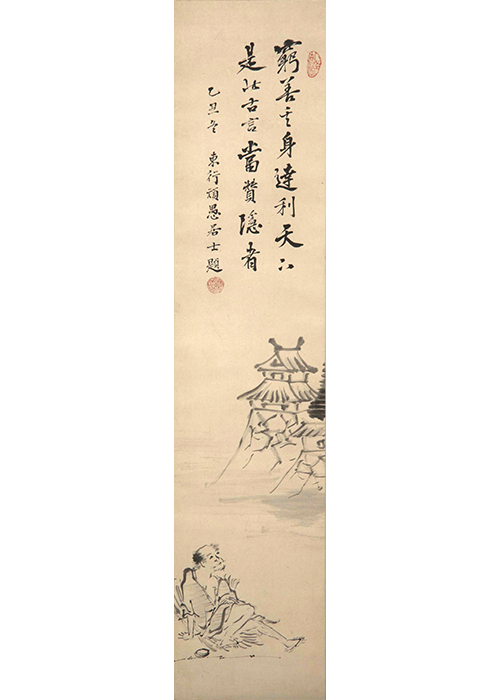 窮善其身達利天下
是此古言當贊隱者
乙丑冬 東行頑愚居士題